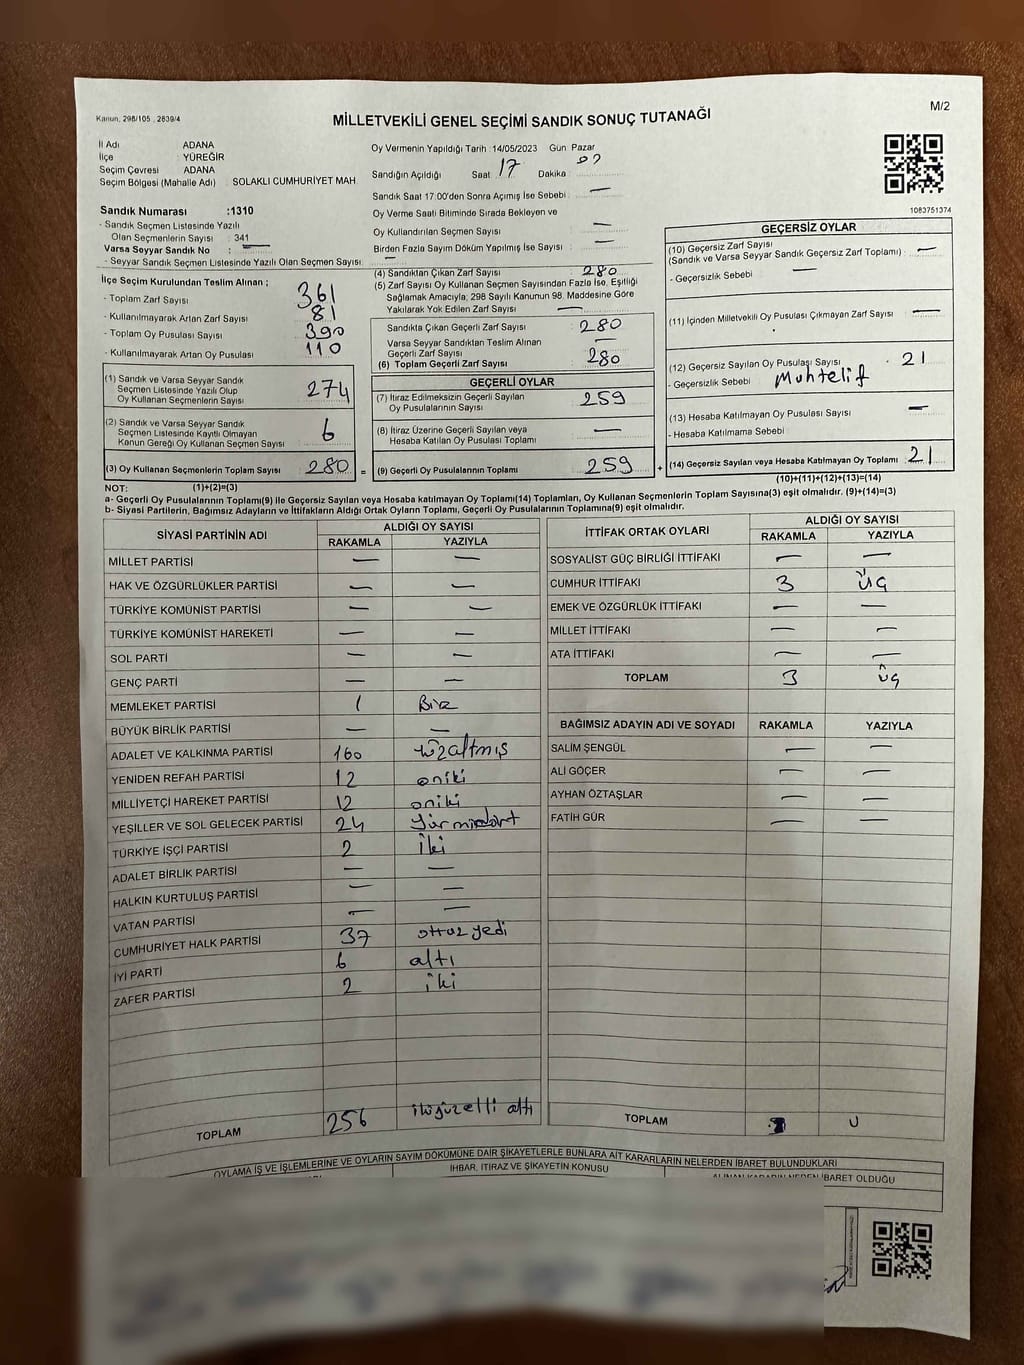 Kanun, 298/105 , 2839/4
MİLLETVEKİLİ GENEL SEÇİMİ SANDIK SONUÇ TUTANAĞI
M/2
İl Adı ADANA
İlçe YÜREĞİR
Seçim Çevresi ADANA
Seçim Bölgesi (Mahalle Adı) SOLAKLI CUMHURİYET MAH.
Oy Vermenin Yapıldığı Tarih :14/05/2023 Gün Pazar
Sandığın Açıldığı Saat 17 Dakika :
Sandık Saat 17:00'den Sonra Açımış İse Sebebi : —
Oy Verme Saati Bitiminde Sırada Bekleyen ve
Oy Kullandırılan Seçmen Sayısı : —
Birden Fazla Sayım Döküm Yapılmış İse Sayısı : —
1083751374
Sandık Numarası :1310
- Sandık Seçmen Listesinde Yazılı
Olan Seçmenlerin Sayısı : 341
Varsa Seyyar Sandık No : —
- Seyyar Sandık Seçmen Listesinde Yazılı Olan Seçmen Sayısı: —
İlçe Seçim Kurulundan Teslim Alınan ;
- Toplam Zarf Sayısı 361
- Kullanılmayarak Artan Zarf Sayısı 81
- Toplam Oy Pusulası Sayısı 390
- Kullanılmayarak Artan Oy Pusulası 110
(1) Sandık ve Varsa Seyyar Sandık
Seçmen Listesinde Yazılı Olup
Oy Kullanan Seçmenlerin Sayısı 274
(2) Sandık ve Varsa Seyyar Sandık
Seçmen Listesinde Kayıtlı Olmayan
Kanun Gereği Oy Kullanan Seçmen Sayısı 6
(3) Oy Kullanan Seçmenlerin Toplam Sayısı 280 =
(4) Sandıktan Çıkan Zarf Sayısı : 280
(5) Zarf Sayısı Oy Kullanan Seçmen Sayısından Fazla İse, Eşitliği
Sağlamak Amacıyla; 298 Sayılı Kanunun 98. Maddesine Göre
Yakılarak Yok Edilen Zarf Sayısı : —
Sandıkta Çıkan Geçerli Zarf Sayısı : 280
Varsa Seyyar Sandıktan Teslim Alınan
Geçerli Zarf Sayısı : —
(6) Toplam Geçerli Zarf Sayısı : 280
GEÇERLİ OYLAR
(7) İtiraz Edilmeksizin Geçerli Sayılan
Oy Pusulalarının Sayısı : 259
(8) İtiraz Üzerine Geçerli Sayılan veya
Hesaba Katılan Oy Pusulası Toplamı : —
(9) Geçerli Oy Pusulalarının Toplamı : 259 +
GEÇERSİZ OYLAR
(10) Geçersiz Zarf Sayısı
(Sandık ve Varsa Seyyar Sandık Geçersiz Zarf Toplamı) : —
- Geçersizlik Sebebi —
(11) İçinden Milletvekili Oy Pusulası Çıkmayan Zarf Sayısı : —
(12) Geçersiz Sayılan Oy Pusulası Sayısı : 21
- Geçersizlik Sebebi Muhtelif
(13) Hesaba Katılmayan Oy Pusulası Sayısı : —
- Hesaba Katılmama Sebebi
(14) Geçersiz Sayılan veya Hesaba Katılmayan Oy Toplamı 21
(10)+(11)+(12)+(13)=(14)
NOT: (1)+(2)=(3)
a- Geçerli Oy Pusulalarının Toplamı(9) ile Geçersiz Sayılan veya Hesaba katılmayan Oy Toplamı(14) Toplamları, Oy Kullanan Seçmenlerin Toplam Sayısına(3) eşit olmalıdır. (9)+(14)=(3)
b- Siyasi Partilerin, Bağımsız Adayların ve İttifakların Aldığı Ortak Oyların Toplamı, Geçerli Oy Pusulalarının Toplamına(9) eşit olmalıdır.
SİYASİ PARTİNİN ADI ALDIĞI OY SAYISI
RAKAMLA YAZIYLA
MİLLET PARTİSİ — —
HAK VE ÖZGÜRLÜKLER PARTİSİ — —
TÜRKİYE KOMÜNİST PARTİSİ — —
TÜRKİYE KOMÜNİST HAREKETİ — —
SOL PARTİ — —
GENÇ PARTİ — —
MEMLEKET PARTİSİ 1 Bir
BÜYÜK BİRLİK PARTİSİ — —
ADALET VE KALKINMA PARTİSİ 160 Yüzaltmış
YENİDEN REFAH PARTİSİ 12 oniki
MİLLİYETÇİ HAREKET PARTİSİ 12 oniki
YEŞİLLER VE SOL GELECEK PARTİSİ 24
TÜRKİYE İŞÇİ PARTİSİ 2 iki
ADALET BİRLİK PARTİSİ — —
HALKIN KURTULUŞ PARTİSİ — —
VATAN PARTİSİ — —
CUMHURİYET HALK PARTİSİ 37 otuz yedi
İYİ PARTİ 6 altı
ZAFER PARTİSİ 2 iki
TOPLAM 256 ikiyüzelli altı
İTTİFAK ORTAK OYLARI ALDIĞI OY SAYISI
RAKAMLA YAZIYLA
SOSYALİST GÜÇ BİRLİĞİ İTTİFAKI — —
CUMHUR İTTİFAKI 3 üç
EMEK VE ÖZGÜRLÜK İTTİFAKI — —
MİLLET İTTİFAKI — —
ATA İTTİFAKI — —
TOPLAM 3 üç
BAĞIMSIZ ADAYIN ADI VE SOYADI RAKAMLA YAZIYLA
SALİM ŞENGÜL — —
ALİ GÖÇER — —
AYHAN ÖZTAŞLAR — —
FATİH GÜR — —
TOPLAM
OYLAMA İŞ VE İŞLEMLERİNE VE OYLARIN SAYIM DÖKÜMÜNE DAİR ŞİKAYETLERLE BUNLARA AİT KARARLARIN NELERDEN İBARET BULUNDUKLARI
İHBAR, İTİRAZ VE ŞİKAYETİN KONUSU
ALINAN KARARIN NEDEN İBARET OLDUĞU